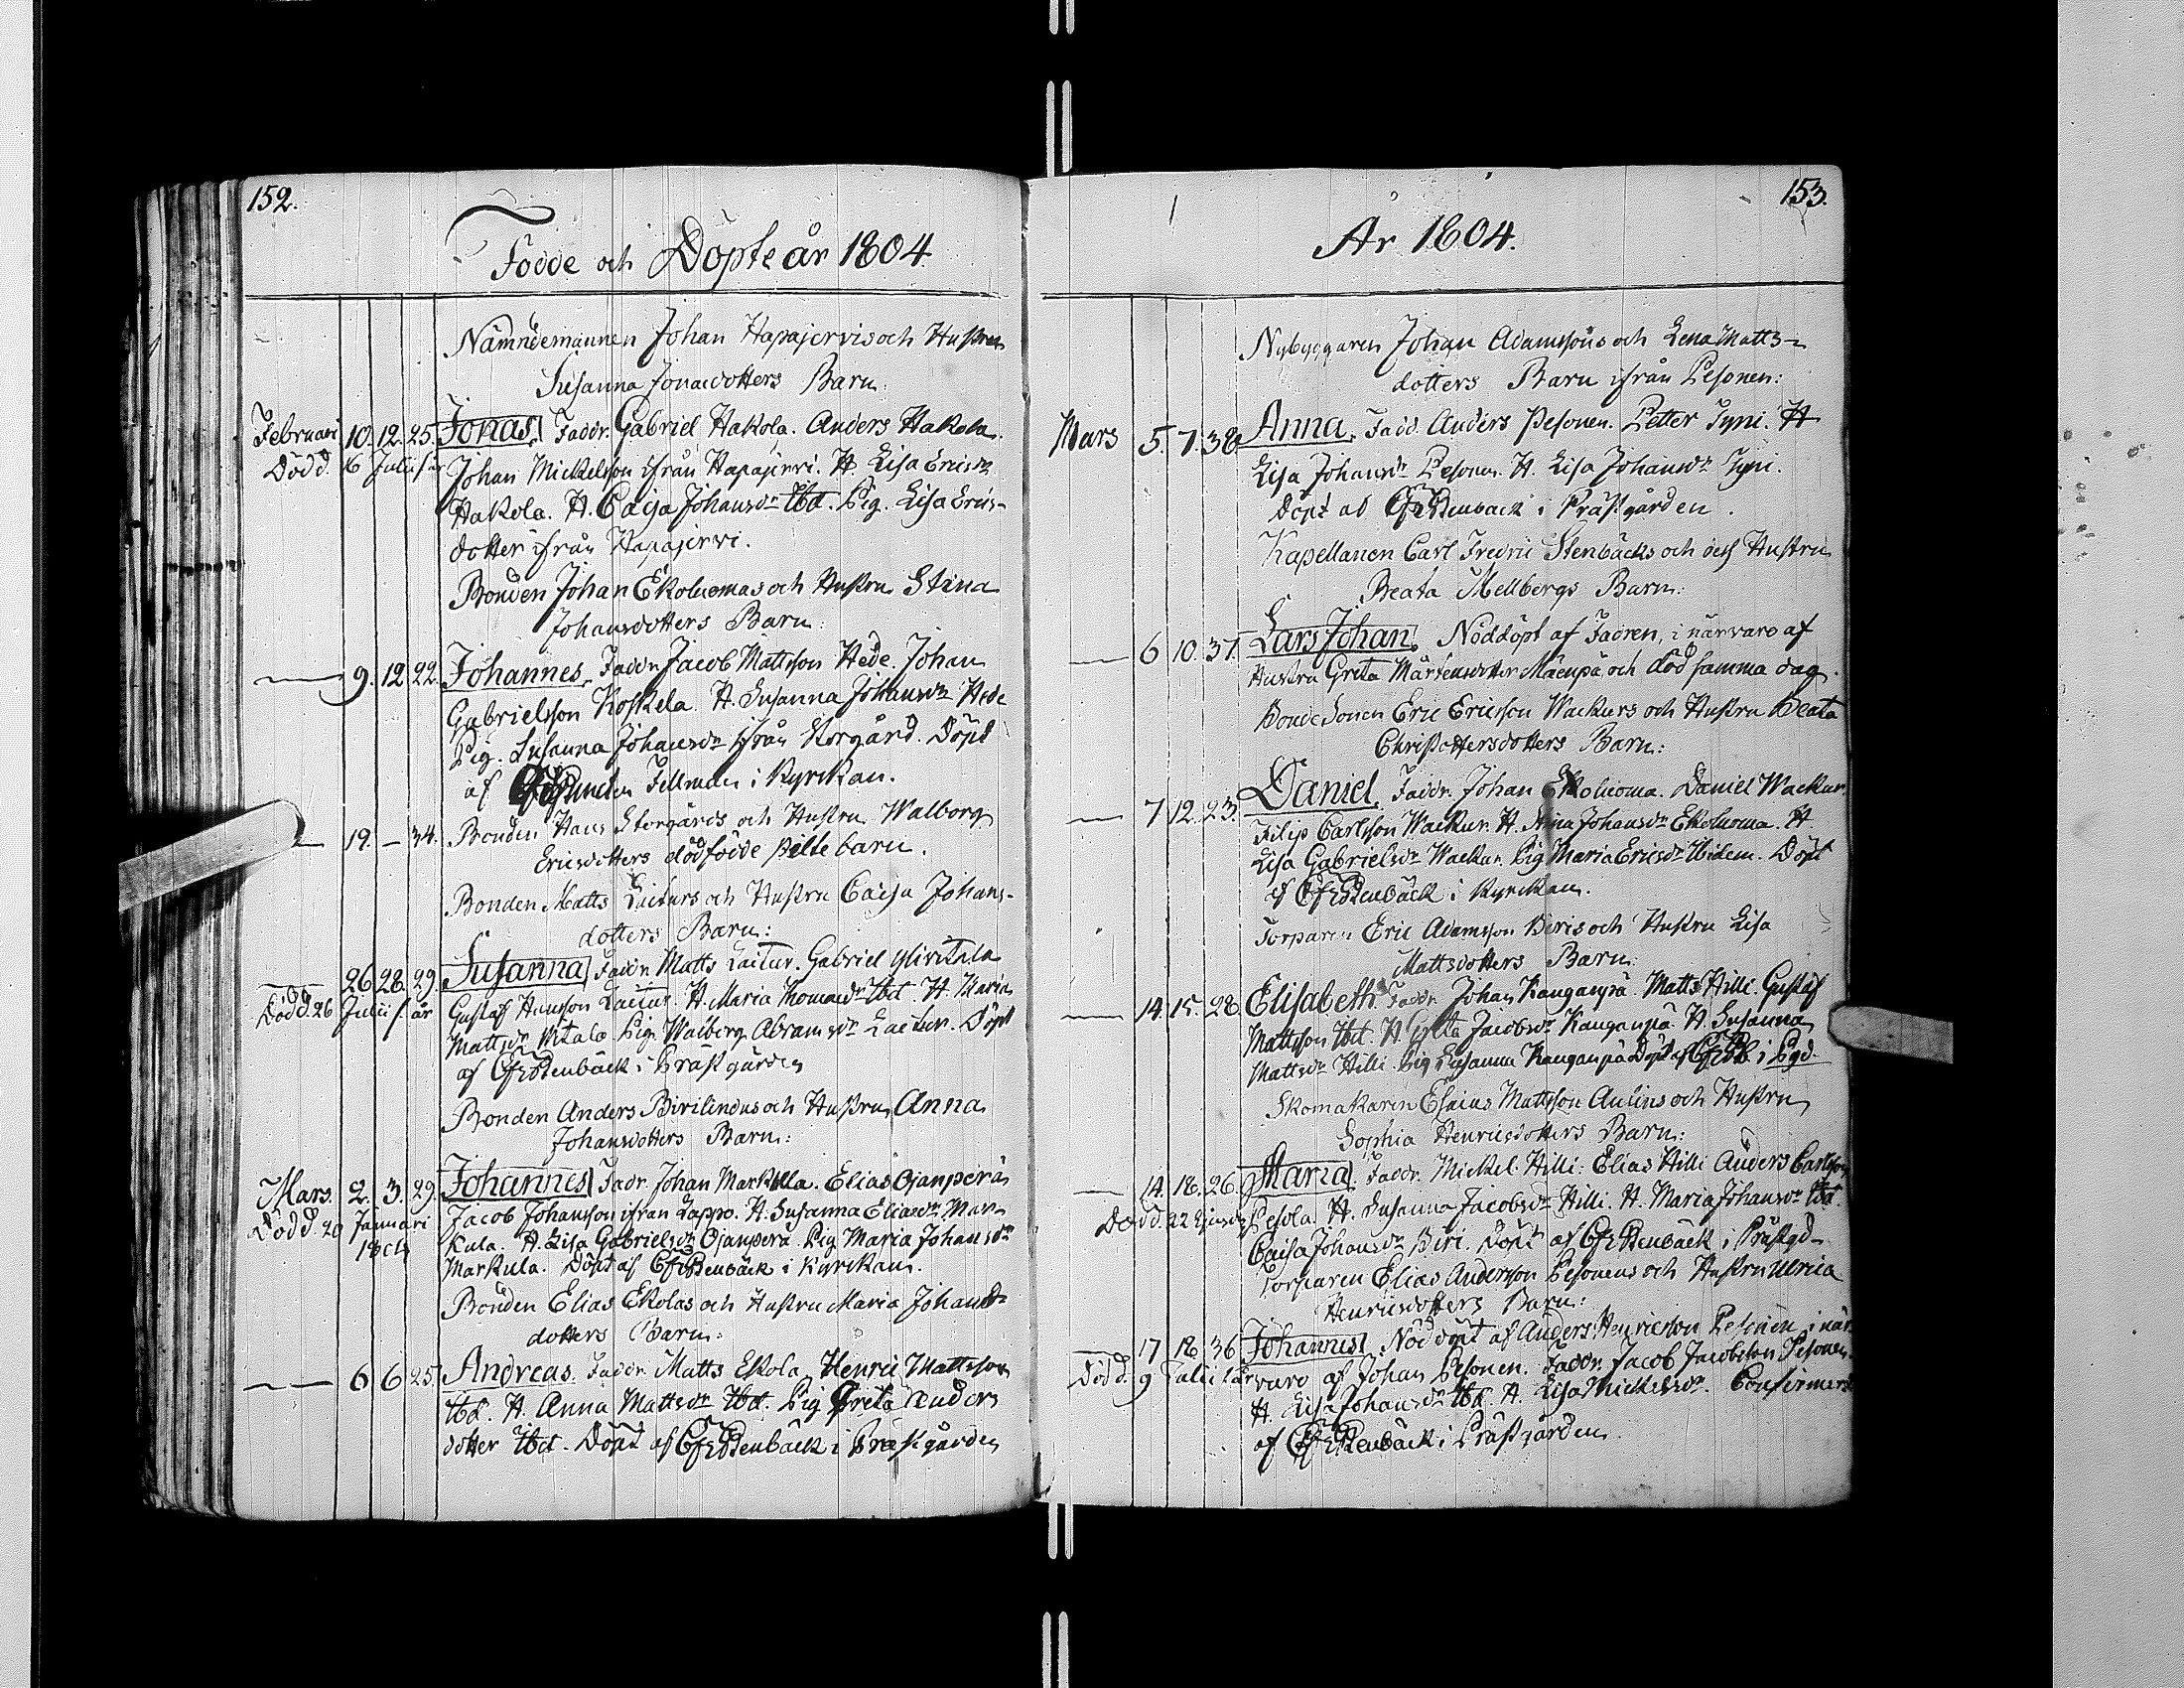 152.
Födde och Döpte år 1804
Nämndemannen Johan Hapajervis och Hustru
Susanna Jonaedotters Barn:
Februari 10. 12. 25. Jonas. Faddr. Gabriel Hakola. Anders Hakola.
Död d. 16 Julii s. år Johan Mickelsson ifrån Hapajervi. H. Lisa Ericsdr
Hakola. H. Caisa Johansdr Ibd. Pig. Lisa Erics-
dotter ifrån Hapajervi.
Bonden Johan Ekoluomas och Hustru Stina
Johansdotters Barn:
9. 12 22. Johannes. Faddr Jacob Mattsson Hede. Johan
Gabrielsson Koskela. H. Susanna Johansdr Hede
Pig. Susanna Johansdr ifrån Norgård. Döpt
af Fellman i Kyrckan.
19. — 34. Bonden Hans Storgårds och Hustru Walborg
Ericsdotters dödfödde Pille barn.
Bonden Matts Luiturs och Hustru Caisa Johans-
dotters Barn:
26 28. 29. Susanna Faddr Matts Laitur. Gabriel Yliritala
Död d. 26 Julii s. år Gustaf Hansson H. Maria Thomaedr Ibd. H. Maria
Mattsdr Pig. Walborg Abramsdr Laitur. Döpt
af CFEStenbäck i Prästgården
Bonden Anders Birilindus och Hustru Anna
Johansdotters Barn:
Mars. 2. 3. 29. Johannes Fadr. Johan Markula. Elias Ojanperä
Död d. 20 Januari Jacob Johansson ifrån Lappo. H. Susanna Eliaedr Mar-
kula. H. Lisa Gabrielsdr Ojanpera Pig Maria Johansdr
Markula. Döpt af CFEStenbäck i Kyrckan.
Bonden Elias Ekolas och Hustru Maria Johans-
dotters Barn:
6 6 25. Andreas. Faddr. Matts Ekola. Henric Mattsson
Ibd. H. Anna Mattsdr Ibd. Pig Greta Anders
dotter Ibd. Döpt af CFEStenbäck i Prästgården
153.
År 1804.
Nybyggaren Johan Adamssons och Lena Matts-
dotters Barn ifrån Pesonen:
Mars 5. 7. 38. Anna. Fadd. Anders Pesonen. Petter Tyni. H
Lisa Johansdr Pesonen. H. Lisa Johansdr Tyni.
Döpt af CFEStenback i Prästgården.
Kapellanen Carl Fredric Stenbäcks och dess Hustru
Beata Mellbergs Barn:
6 10. 37. Lars Johan. Nöddöpt af Fadren, i närvaro af
Hustru Greta Mårtensdotter Mäenpä och död samma dag.
Bonde Sonen Eric Ericsson Wackurs och Hustru Beata
Christoffersdotters Barn:
7 12. 23. Daniel. Faddr. Johan Ekoluoma. Daniel Wackur.
Filip Carlsson Wackur. H. Stina Johansdr Ekoluoma. H
Lisa Gabrielsdr Wackur. Pig Maria Ericsdr Ibidem. Döpt
af CFEStenbäck i Kyrckan.
Torparen Eric Adamsson Biris och Hustru Lisa
Mattsdotters Barn:
14. 15. 28 Elisabeth. Faddr. Johan Kanganpä. Matts Hilli. Gustaf
Mattsson Ibd. H. Greta Jacobsdr Kanganpä. H. Susanna
Mattsdr Hilli. Pig Susanna Kanganpä Döpt af CFEStb i Pgd.
Skomakaren Esaias Mattsson Aulins och Hustru
Sophia Henricsdotters Barn:
14. 18. 26. Maria. Faddr. Mickel Hilli. Elias Hilli Anders Carlsson
Död d. 22 Pesola. H. Susanna Jacobsdr Hilli. H. Maria Johansdr Ibd.
Caisa Johansdr Biri. Döpt af CFEStenbäck i Prästgd-
Torparen Elias Andersson Pesonens och Hustru Ulrica
Henricsdotters Barn:
17 18 36 Johannes. Nöddöpt af Anders Henricsson Pesonen, i när-
Död d. 9 Julii s. år varo af Johan Pesonen. Faddr. Jacob Jacobsson Pesonen.
H. Lisa Johansdr Ibd. H. Lisa Mickelsdr. Confirmerd
af CFEStenbäck i Prästgården.